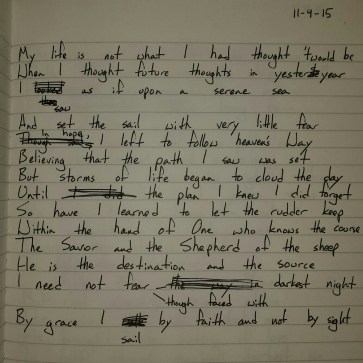 11-4-15
My life is not what I had thought 'twould be
When I thought future thoughts in yester year
I as if upon a serene sea
saw
And set the sail with very little fear
In hope,
I left to follow heaven's Way
Believing that the path I saw was set
But storms of life began to cloud the day
Until the plan I knew I did forget
So have I learned to let the rudder keep
Within the hand of One who knows the course
The Savior and the Shepherd of the sheep
He is the destination and the source
I need not fear in darkest night
though faced with
By grace I by faith and not by sight
sail